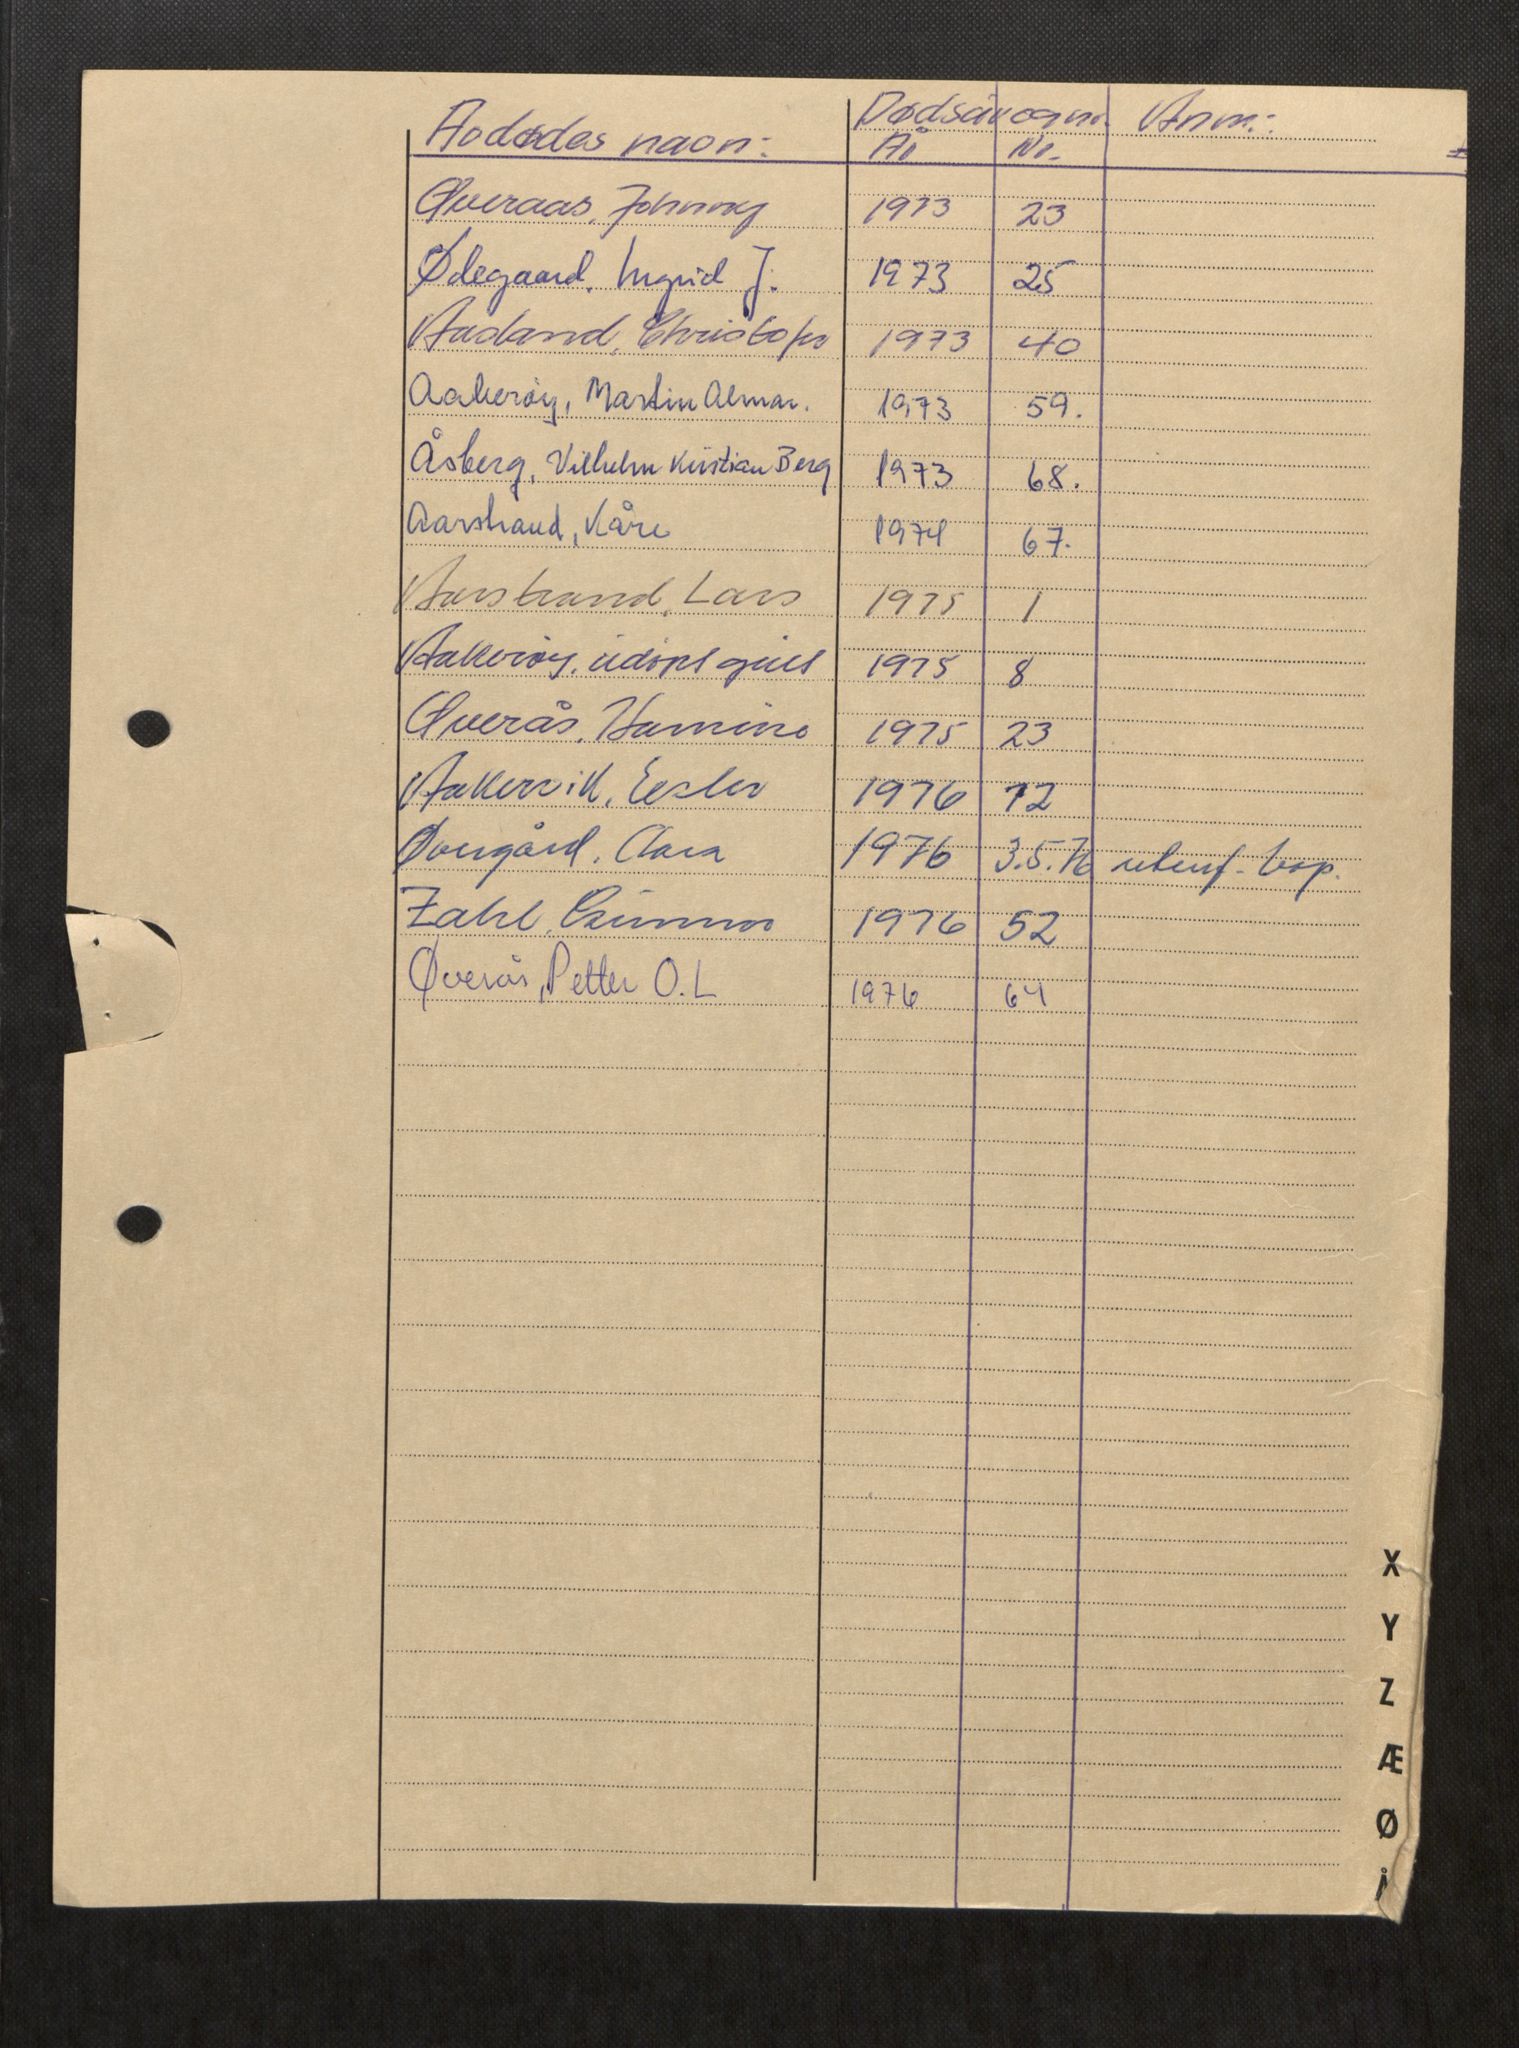 Avdødes navn: Dødsårognr. Anm.:
År Nr.
Øveraas, Johnny 1973 23
Ødegaard, Ingrid J. 1973 25
Aasland, Christofer 1973 40
Aakerøy, Martin Almar. 1973 59.
Åsberg, Vilhelm Kristian Berg 1973 68.
Aarstrand, Kåre 1974 67.
Aarstrand, Lars 1975 1
Aakerøy, udøpt 1975 8
Øverås, 1975 23
Aakervik, 1976 72
Øvergård, Clara 1976 3.5.76
Zahl, Gunnar 1976 52
Øverås, Petter O.L 1976 64
X
Y
Z
Æ
Ø
Å